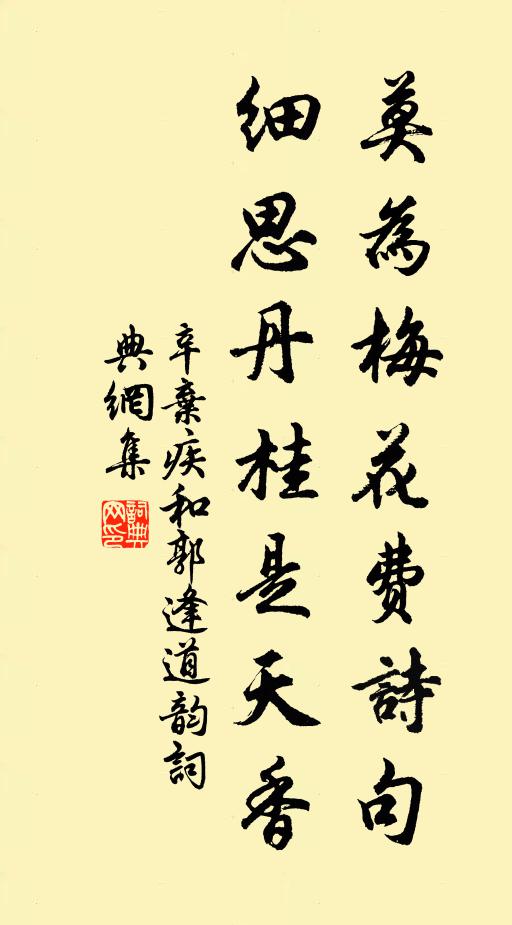 莫為梅花費詩句
細思丹桂是天香
辛棄疾和郭逢道韵詞
典網集
詞典
网印